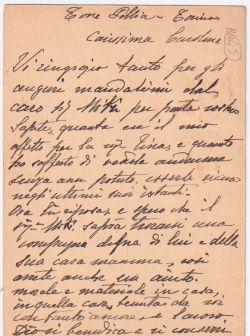 Torre Pellice - Torino
Carissima Carolina
Vi ringrazio tanto per gli
auguri mandatimi dal
caro fig. per parte vostra
Sapete, quanta era il mio
affetto per la Tina, e quanto
ho sofferto di vederla ammalata
senza aver potuto, esserle vicina
negli ultimi suoi istanti.
Ora riposa, e spero che il
saprà trovarsi una
compagna degna di lui e della
sua cara mamma, così
avrete anche un aiuto
morale e materiale in casa,
in quella casa tenuta da voi
con tanto amore, e lavoro
Dio vi benedica e vi conservi